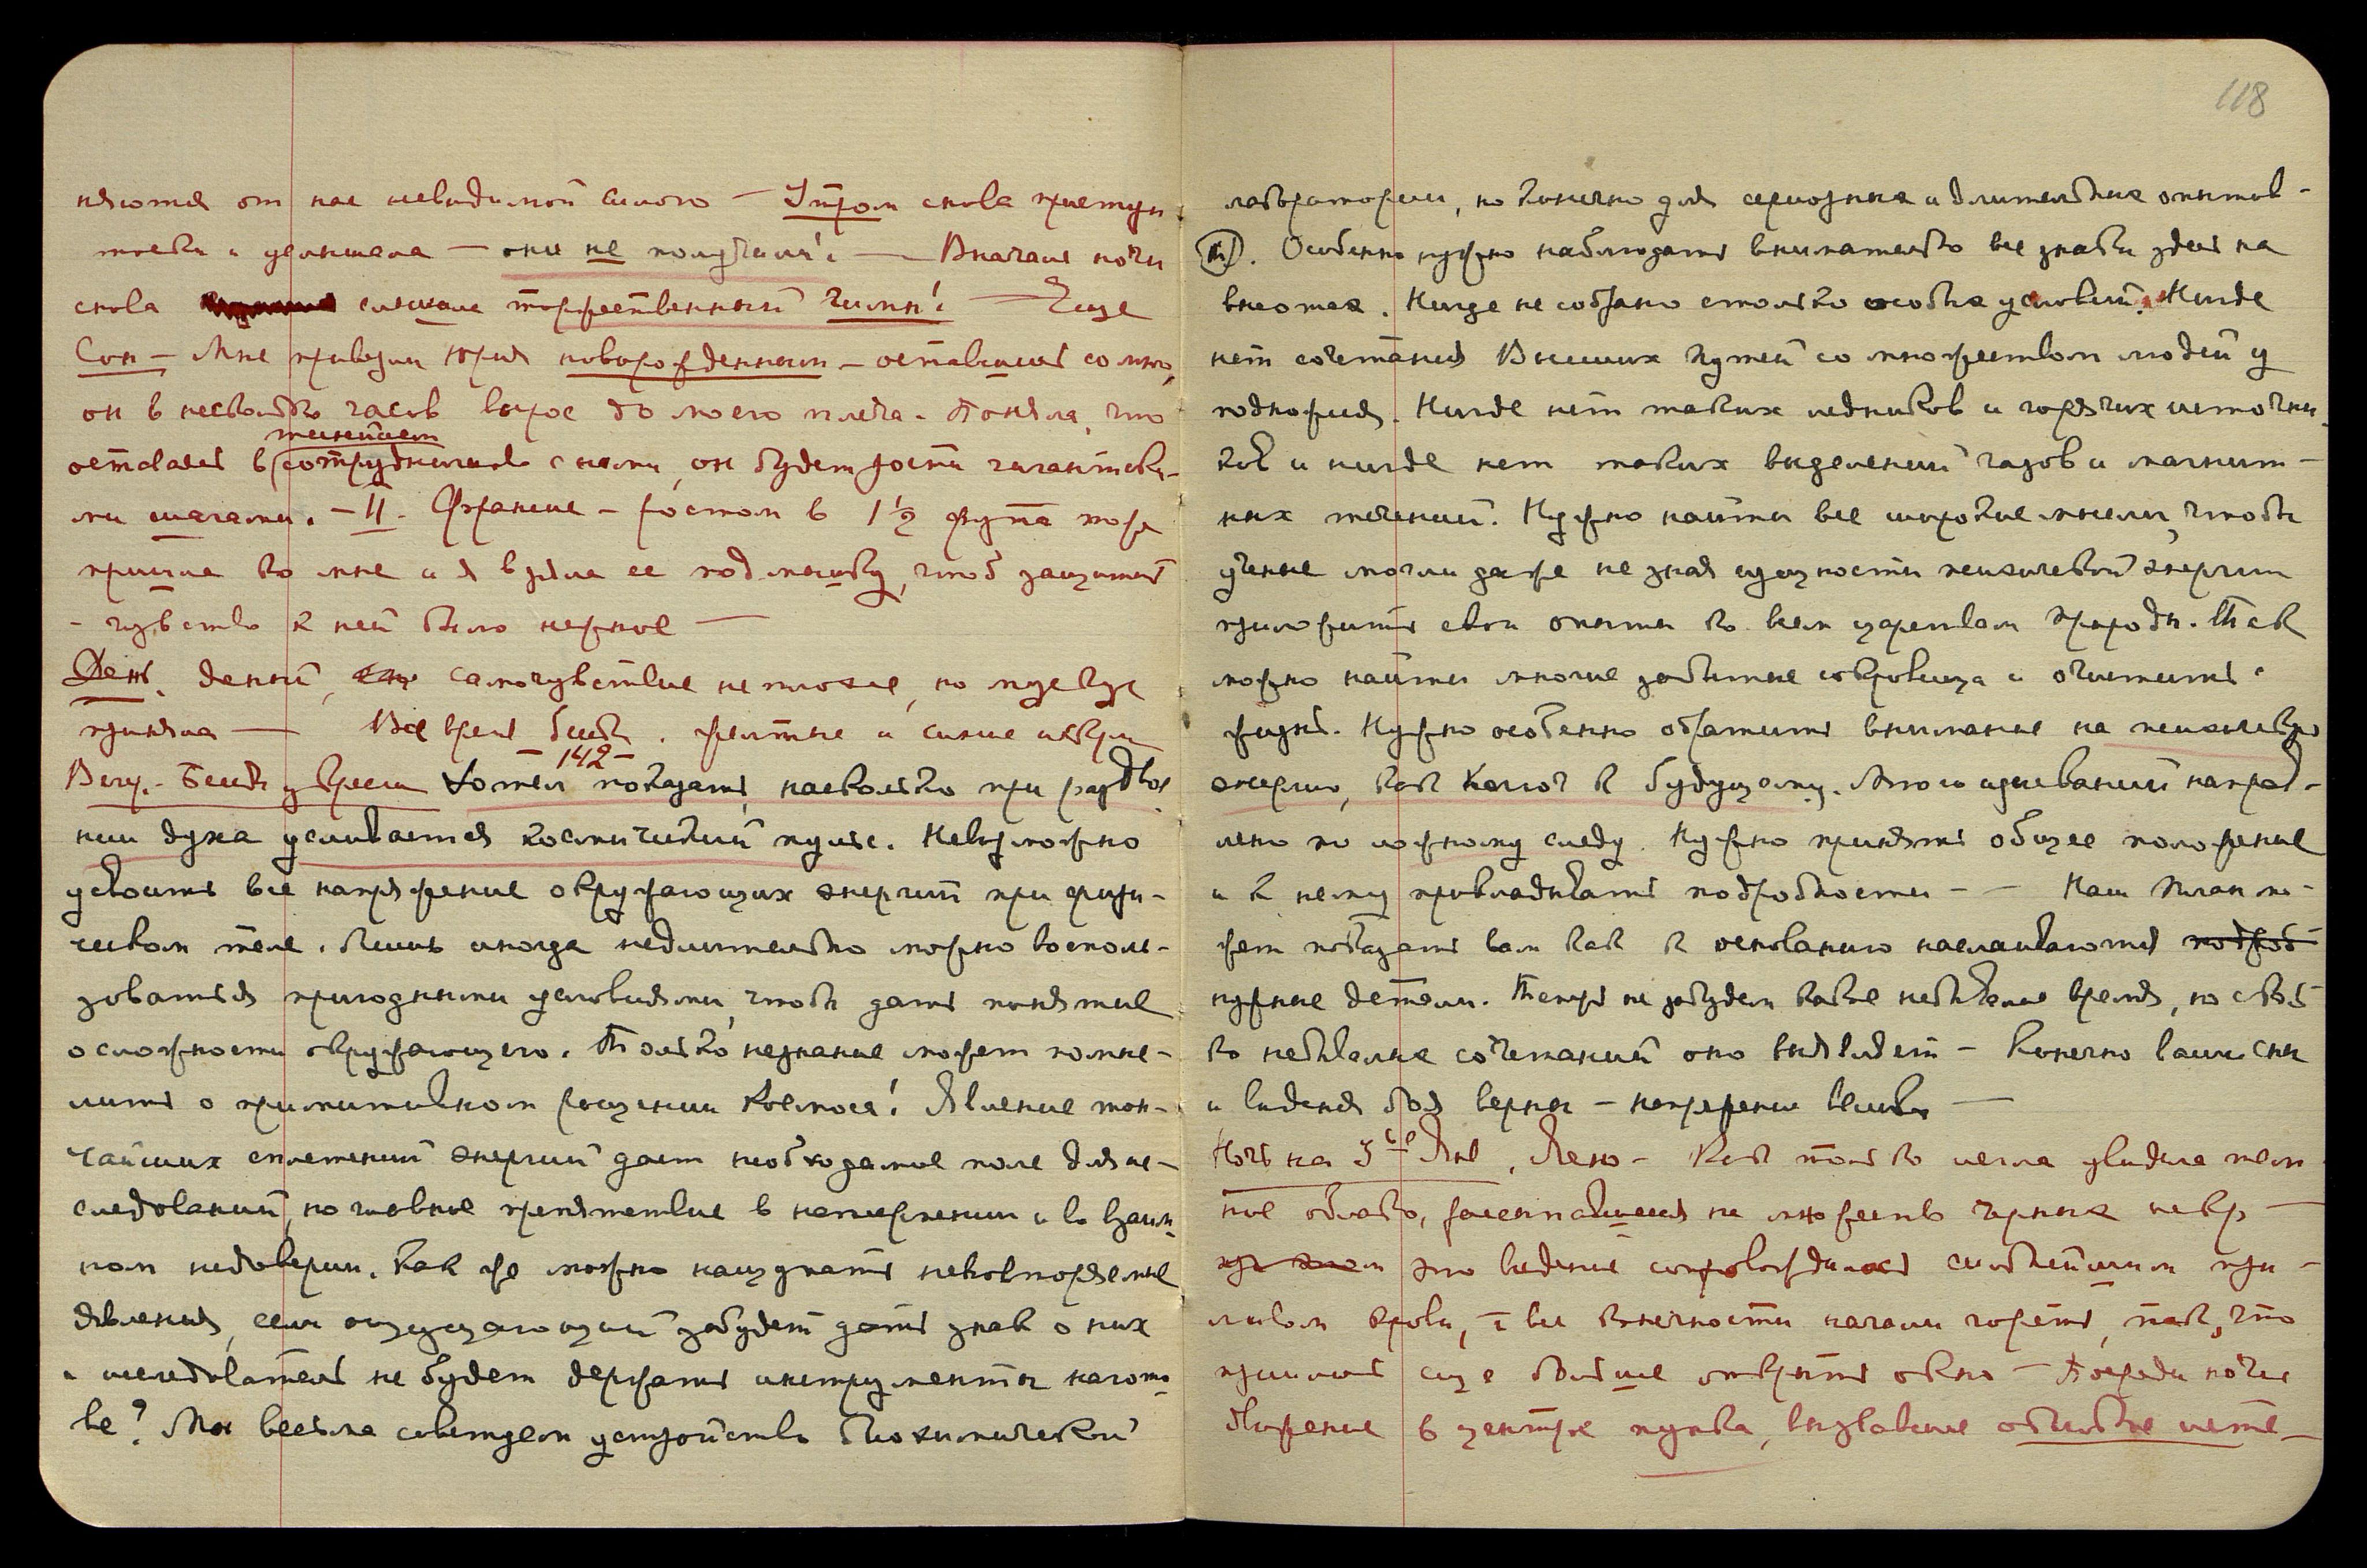 няются от нас невидимой силою — Утром снова приступ
тоски и услышала — они не получили! — Вначале ночи
снова слышала торжественный гимн! — Еще
Сон — Мне привезли Юрия новорожденным — оставшись со мною,
он в несколько часов вырос до моего плеча. Поняла, что
теснейшем
оставаясь в сотрудничестве с нами, он будет расти гигантски-
ми шагами. — II. Франсис — ростом в 1½ фута тоже
пришла ко мне и я взяла ее под мышку, чтоб защитить
— чувство к ней было нежное —
День. самочувствие неплохое, но
приняла — Все время были желтые и синие искры
— 142 —
Веч. Беседа Хотел показать, насколько при раздвое-
нии духа усиливается космический пульс. Невозможно
усвоить все напряжение окружающих энергий при физи-
ческом теле. Лишь иногда недлительно можно восполь-
зоваться пригодными условиями, чтобы дать понятие
о сложности окружающего. Только незнание может помыс-
лить о примитивном решении Космоса! Явление тон-
чайших сплетений энергий дает необходимое поле для ис-
следований, но главное препятствие в неподвижении и во взаим-
ном недоверии. Как же можно наизнать неповторяемые
явления, если ощущающий забудет дать знак о них
и исследователь не будет держать инструменты нагото-
ве? Мы весьма советуем устройство биохимической
118
лаборатории, но конечно для серьезных и длительных опытов —
Особенно нужно наблюдать внимательно все знаки здесь на
высотах. Нигде не собрано столько особых условий. Нигде
нет сочетания Высших Путей со множеством людей у
подножия. Нигде нет таких ледников и горячих источни-
ков и нигде нет таких выделений газов и магнит-
ных течений. Нужно найти все широкие мысли, чтобы
ученые могли даже не зная сущности психической энергии
приложить свои опыты ко всем царствам природы. Так
можно найти многие забытые сокровища и очистить
жизнь. Нужно особенно обратить внимание на психическую
энергию, как ключ к будущему. Много изысканий направ-
лено по ложному следу. Нужно принять общее положение
и к нему прикладывать подробности — — Наш план мо-
жет показать вам как к основанию наслаиваются подроб
нужные детали. Теперь не забудем какое небывалое время, но сколь-
ко небывалых сочетаний оно выявляет — Конечно ваши сны
и видения боя верны — напряжение велико —
Ночь на 5ое Янв. Ясно — Как только легла увидела тем-
ное облако, распавшееся на множество черных искр —
это видение сопровождалось сильнейшим при-
ливом крови, и все конечности начали гореть, так, что
пришлось еще больше открыть окно — Посреди ночи
Жжение в центре пупка, вызвавшее обильное исте-